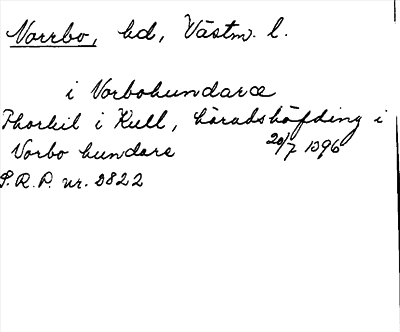 Norrbo, hd, Västm. l.
i Norbohundaræ
Thorkil i Kull, häradshöfding i
Norbo hundare 20/7 1396
S.R.P. nr. 2822